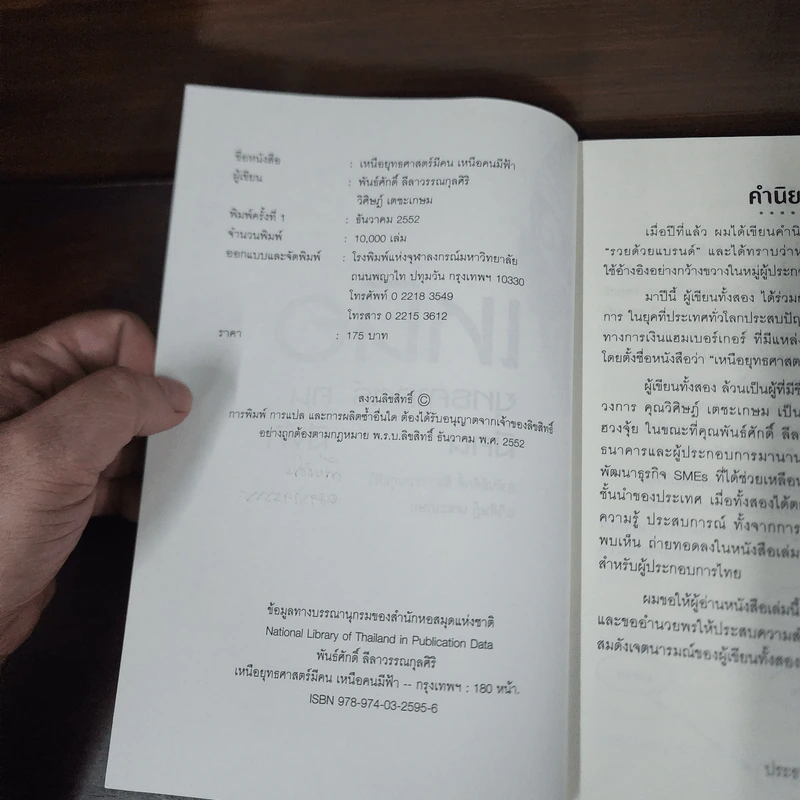 ชื่อหนังสือ : เหนือยุทธศาสตร์มีคน เหนือคนมีฟ้า
ผู้เขียน : พันธ์ศักดิ์ ลีลาวรรณกุลศิริ
วิศิษฎ์ เตชะเกษม
พิมพ์ครั้งที่ 1 : ธันวาคม 2552
จำนวนพิมพ์ : 10,000 เล่ม
ออกแบบและจัดพิมพ์ : โรงพิมพ์แห่งจุฬาลงกรณ์มหาวิทยาลัย
ถนนพญาไท ปทุมวัน กรุงเทพฯ 10330
โทรศัพท์ 0 2218 3549
โทรสาร 0 2215 3612
ราคา : 175 บาท
สงวนลิขสิทธิ์ ©
การพิมพ์ การแปล และการผลิตซ้ำอื่นใด ต้องได้รับอนุญาตจากเจ้าของลิขสิทธิ์
อย่างถูกต้องตามกฎหมาย พ.ร.บ.ลิขสิทธิ์ ธันวาคม พ.ศ. 2552
ข้อมูลทางบรรณานุกรมของสำนักหอสมุดแห่งชาติ
National Library of Thailand in Publication Data
พันธ์ศักดิ์ ลีลาวรรณกุลศิริ
เหนือยุทธศาสตร์มีคน เหนือคนมีฟ้า -- กรุงเทพฯ : 180 หน้า.
ISBN 978-974-03-2595-6
คำนิย
เมื่อปีที่แล้ว ผมได้เขียนคำนิ
"รวยด้วยแบรนด์" และได้ทราบว่าห
ใช้อ้างอิงอย่างกว้างขวางในหมู่ผู้ประก
มาปีนี้ ผู้เขียนทั้งสอง ได้ร่วมก
การ ในยุคที่ประเทศทั่วโลกประสบปัญ
ทางการเงินแฮมเบอร์เกอร์ ที่มีแหล่ง
โดยตั้งชื่อหนังสือว่า "เหนือยุทธศาสต
ผู้เขียนทั้งสอง ล้วนเป็นผู้ที่มีชื
วงการ คุณวิศิษฎ์ เตชะเกษม เป็น
ฮวงจุ้ย ในขณะที่คุณพันธ์ศักดิ์ ลีล
ธนาคารและผู้ประกอบการมานาน
พัฒนาธุรกิจ SMEs ที่ได้ช่วยเหลือ
ชั้นนำของประเทศ เมื่อทั้งสองได้ต
ความรู้ ประสบการณ์ ทั้งจากการ
พบเห็น ถ่ายทอดลงในหนังสือเล่ม
สำหรับผู้ประกอบการไทย
ผมขอให้ผู้อ่านหนังสือเล่มนี้
และขออำนวยพรให้ประสบความสำ
สมดังเจตนารมณ์ของผู้เขียนทั้งสอง
ประธ